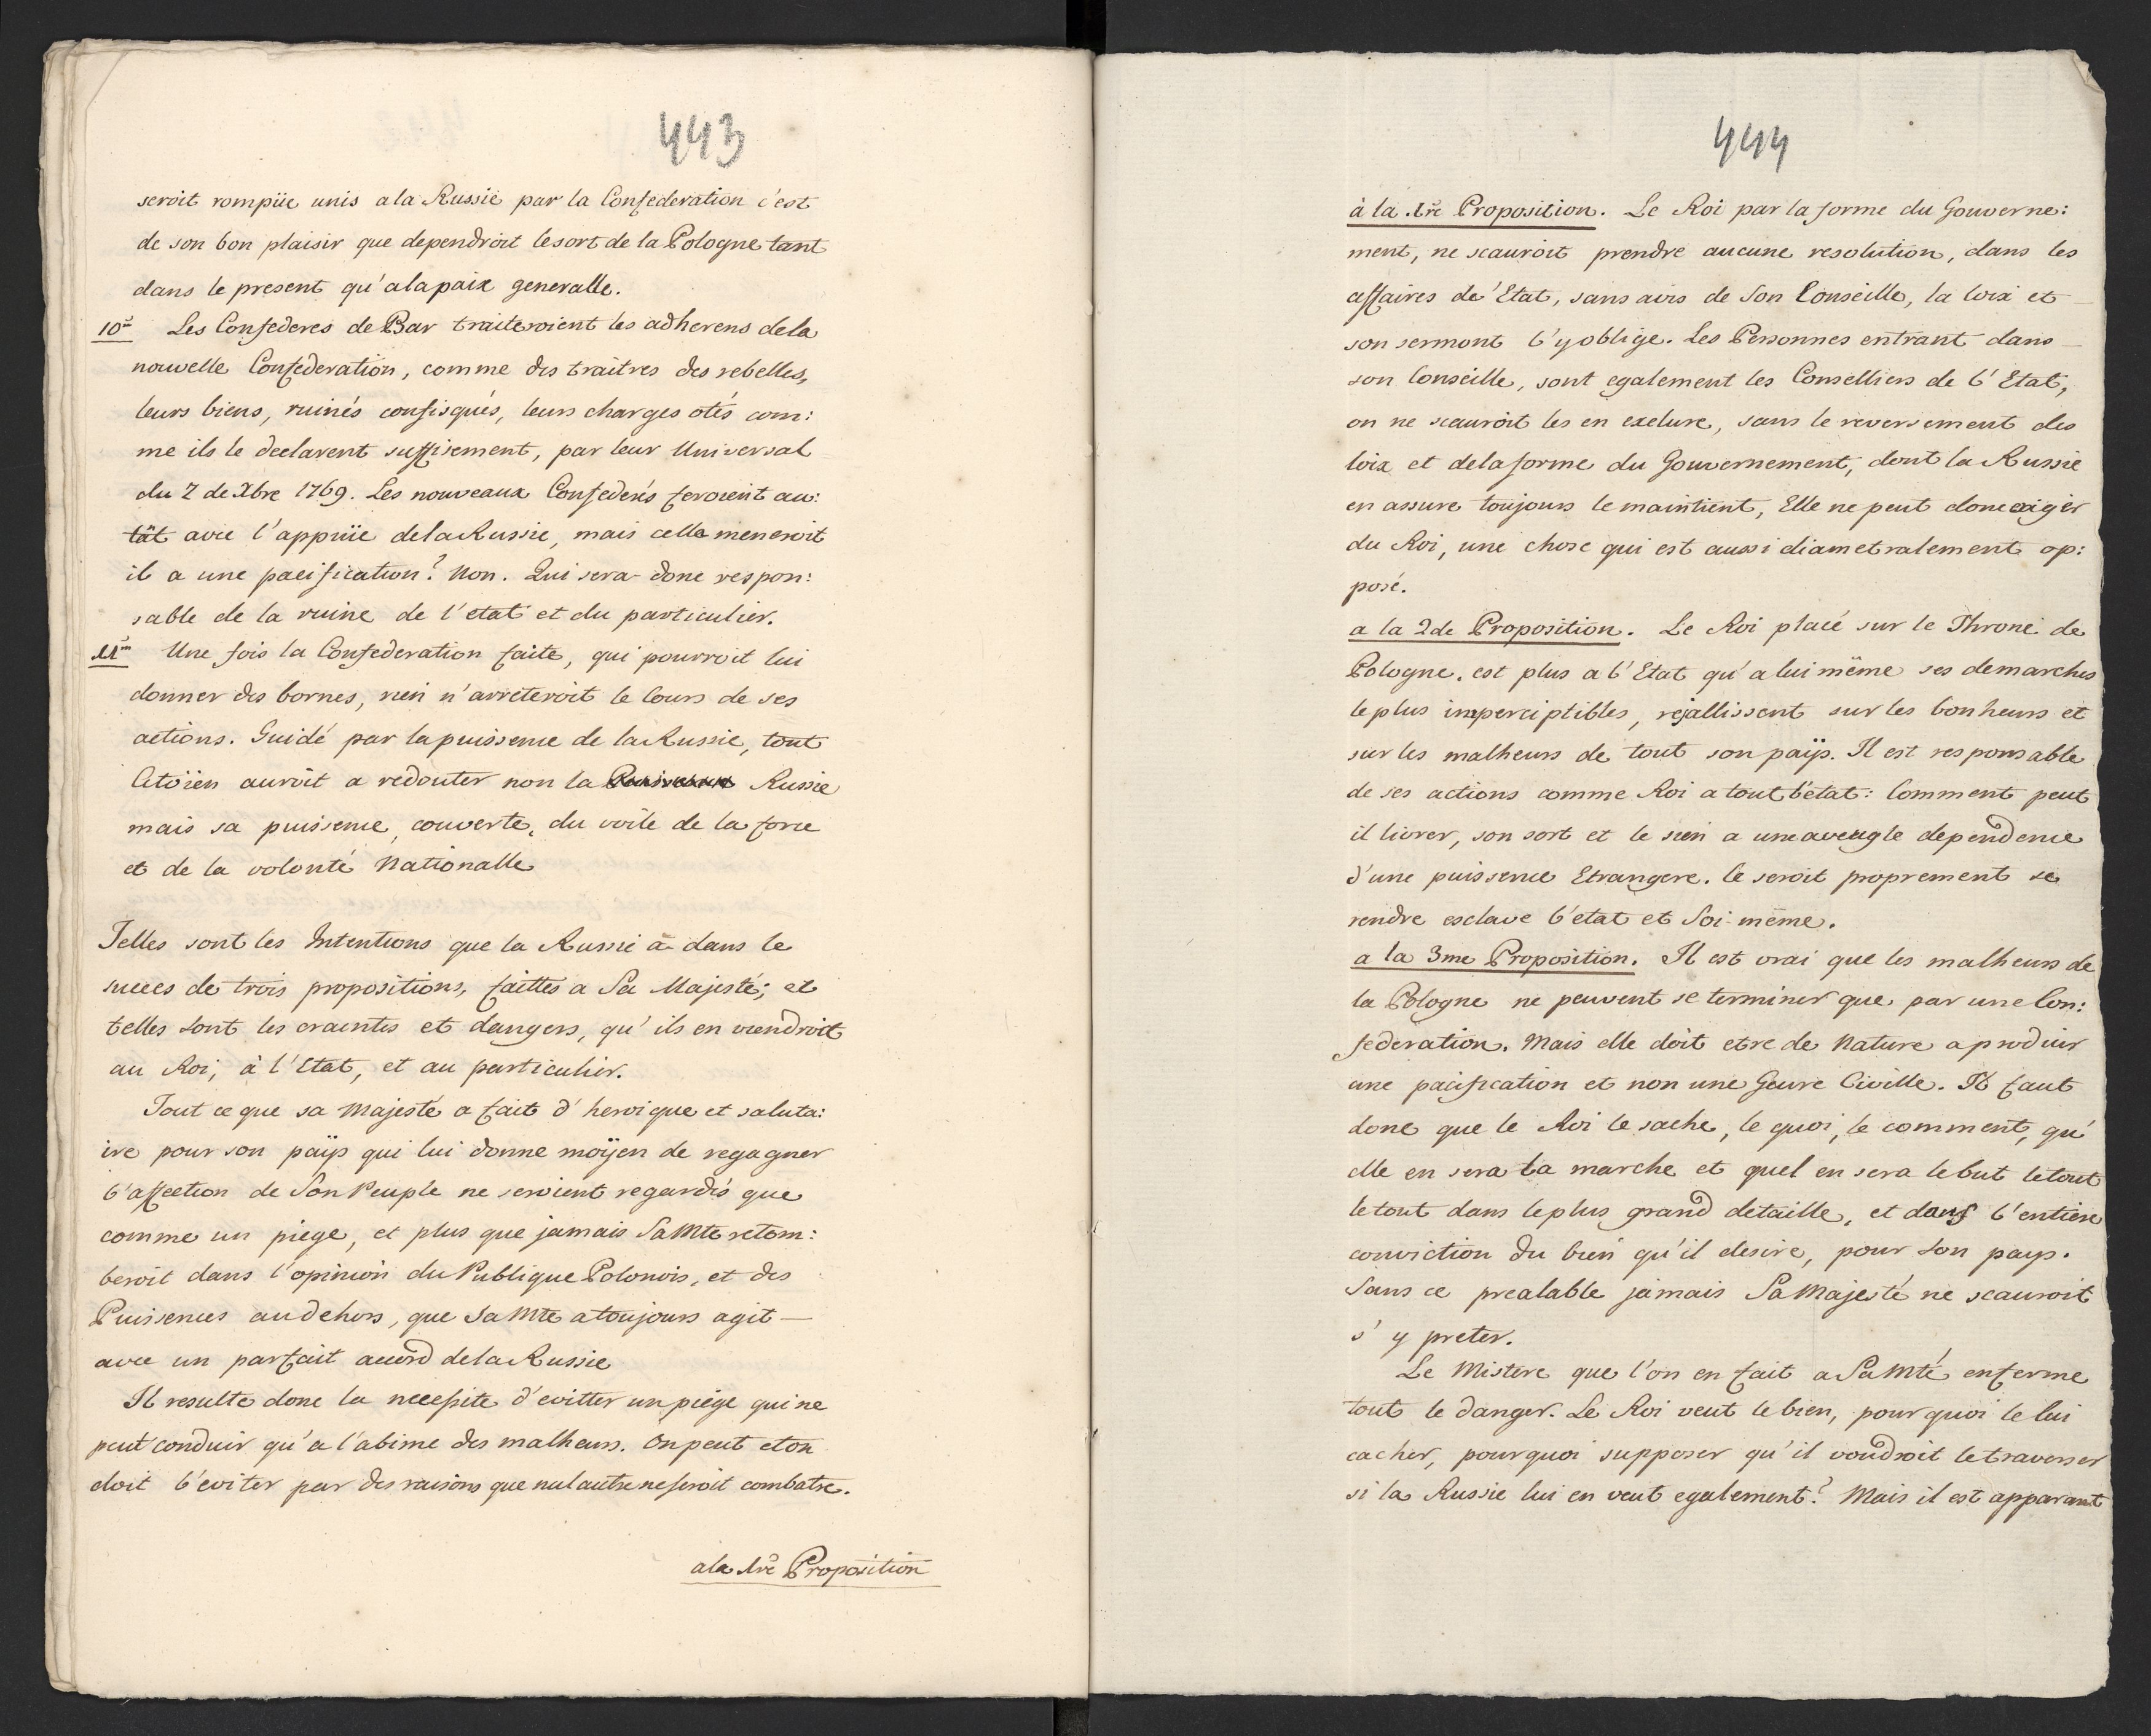 443
seroit rompüe unis a la Russie par la Confederation c'est
de son bon plaisir que dependroit le sort de la Pologne tant
dans le present qu'a la paix generalle.
10º Les Confederes de Bar traiteroient les adherens de la
nouvelle Confederation, comme des traitres des rebelles,
leurs biens, ruinés confisqués, leurs charges otés com:
me ils le declarent suffisement, par leur Universal
du 7 de Xbre 1769. Les nouveaux Confederés feroient au:
tät avec l'appüie de la Russie, mais celle meneroit
il a une pacification? Non. Qui sera donc respon:
sable de la ruine de l'etat et du particulier.
11m Une fois la Confederation faite, qui pourroit lui
donner des bornes, rien n'arreteroit le Cours de ses
actions. Guidé par la puissence de la Russie, tout
Citoïen auroit a redouter non la Russie
mais sa puissence, couverte, du voile de la force
et de la volonté Nationalle
Telles sont les Intentions que la Russie a dans le
succes de trois propositions, faittes a Sa Majesté; et
telles sont les craintes et dangers, qu'ils en viendroit
au Roi, à l'Etat, et au particulier.
Tout ce que sa Majesté a fait d'heroique et saluta:
ire pour son païjs qui lui donne moÿen de regagner
l'affection de Son Peuple ne seroient regardés que
comme un piege, et plus que jamais Sa Mte retom:
beroit dans l'opinion du Publique Polonois, et des
Puissences au dehors, que Sa Mte a toujours agit —
avec un parfait acord de la Russie
Il resulte donc la necessite d'evitter un piége qui ne
peut conduir qu'a l'abime des malheurs. On peut et on
doit l'eviter par des raisons que nul autre ne seroit combatre.
a la 1re Proposition
444
à la 1re Proposition. Le Roi par la forme du Gouverne:
ment, ne scauroit prendre aucune resolution, dans les
affaires de'Etat, sans avis de Son Conseille, la loix et
son sermont l'y oblige. Les Personnes entrant dans
son Conseille, sont egalement les Conselliers de l'Etat,
on ne scauroit les en exclure, sans le reversement des
loix et de la forme du Gouvernement, dont la Russie
en assure toujours le maintient, Elle ne peut donc exiger
du Roi, une chose qui est aussi diametralement op:
posé.
a la 2de Proposition. Le Roi placé sur le Throne de
Pologne, est plus a l'Etat qu'a lui même ses demarches
le plus imperciptibles, rejallissent sur les bonheurs et
sur les malheurs de tout son païjs. Il est responsable
de ses actions comme Roi a tout l'état: Comment peut
il livrer, son sort et le sien a une aveugle dependence
d'une puissence Etrangere. Ce seroit proprement se
rendre esclave l'etat et Soi-même.
a la 3me Proposition. Il est vrai que les malheurs de
la Pologne ne peuvent se terminer que par une Con:
federation. Mais elle doit etre de Nature a produir
une pacification et non une Geure Civille. Il faut
donc que le Roi le sache, le quoi, le comment, qu'
elle en sera la marche et quel en sera le but le tout
le tout dans le plus grand detaille, et dans l'entiere
conviction du bien qu'il desire, pour son pays.
Sans ce prealable jamais Sa Majesté ne scauroit
s'y preter.
Le Mistere que l'on en fait a Sa Mté enferme
tout le danger. Le Roi veut le bien, pourquoi le lui
cacher, pourquoi supposer qu'il voudroit le traverser
si la Russie lui en veut egalement? Mais il est apparant